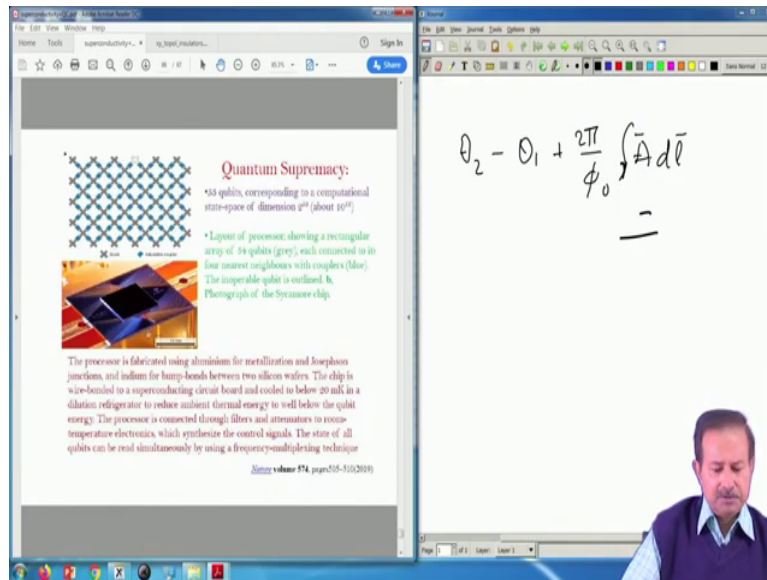 superconductivity+QC.pdf - Adobe Acrobat Reader DC
File Edit View Window Help
Home Tools superconductivity+... × xy_topol_insulators... Sign In
Share
Quantum Supremacy:
•53 qubits, corresponding to a computational
state-space of dimension 2⁵³ (about 10¹⁶)
• Layout of processor, showing a rectangular
array of 54 qubits (grey), each connected to its
four nearest neighbours with couplers (blue).
The inoperable qubit is outlined. b,
Photograph of the Sycamore chip.
Qubit Adjustable coupler
The processor is fabricated using aluminium for metallization and Josephson
junctions, and indium for bump-bonds between two silicon wafers. The chip is
wire-bonded to a superconducting circuit board and cooled to below 20 mK in a
dilution refrigerator to reduce ambient thermal energy to well below the qubit
energy. The processor is connected through filters and attenuators to room-
temperature electronics, which synthesize the control signals. The state of all
qubits can be read simultaneously by using a frequency-multiplexing technique
Nature volume 574, pages505–510(2019)
File Edit View Journal Tools Options Help
θ₂ - θ₁ + 2π/φ₀ ∫ Ā dl̄
Page 1 of 1 Layer: Layer 1